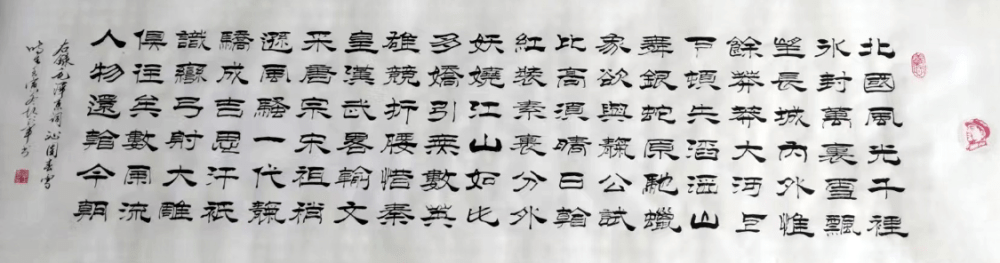 北國風光千裡
冰封萬裏雪飄
望長城內外惟
餘莽莽大河上
下頓失滔滔山
舞銀蛇原馳蠟
象欲與靝公試
比高須晴日看
紅裝素裹分外
妖嬈江山如此
多嬌引無數英
雄競折腰惜秦
皇漢武畧輸文
采唐宗宋祖稍
遜風騷一代靝
驕成吉思汗祇
識彎弓射大雕
俱往矣數風流
人物還看今朝
右錄毛澤東詞沁園春雪